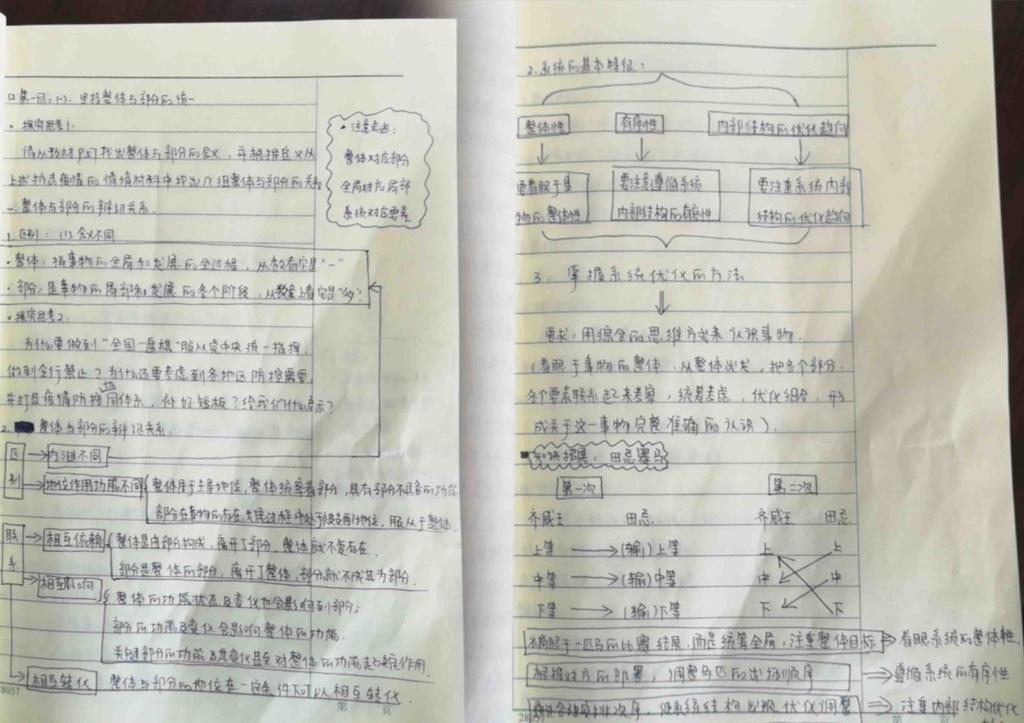 口第一目:(一). 坚持整体与部分的统一
• 探究思考1:
请从教材P57找出整体与部分的含义,并根据定义从
上述抗击疫情的情境材料中找出几组整体与部分的关系
一.整体与部分的辨证关系.
1.区别: (1).含义不同
• 整体:指事物的全局和发展的全过程,从数看它是"一"
• 部分:是事物的局部和发展的各个阶段,从数量上看它是"多"
• 探究思考2:
为什么要做到"全国一盘棋"服从党中央统一指挥,
做到令行禁止?为什么还要考虑到各地区防控需要,
并打造疫情防控同体系,补好短板?给我们什么启示?
2. 整体与部分的辨证关系.
• 注意表述:
整体对应部分
全局对应局部
系统对应要素
区别
内涵不同
地位作用功能不同
整体居于主导地位,整体统率着部分,具有部分不具备的功能
部分在事物的存在发展过程中处于被支配的地位,服从于整体.
联系
相互依赖
整体是由部分构成,离开了部分,整体就不复存在.
部分是整体的部分,离开了整体,部分就不成其为部分.
相互影响
整体的功能状态及变化也会影响到部分;
部分的功能及变化会影响整体的功能.
关键部分的功能及其变化甚至对整体的功能起决定作用.
相互转化
整体与部分的地位在一定条件下可以相互转化
第 页
2.系统的基本特征:
整体性
有序性
内部结构的优化趋向
要着眼于事
物的整体性
要注意遵循系统
内部结构的有序性
要注重系统内部
结构的优化趋向
3. 掌握系统优化的方法
要求:用综合的思维方式来认识事物.
(着眼于事物的整体,从整体出发,把各个部分.
各个要素联系起来考察,统筹考虑,优化组合,形
成关于这一事物完整准确的认识).
知识拓展:田忌赛马
第一次 第二次
齐威王 田忌 齐威王 田忌
上等 (输)上等 上 上
中等 (输)中等 中 中
下等 (输)下等 下 下
不局限于一匹马的比赛结果,而是统筹全局,注重整体目标 着眼系统的整体性
根据对方的部署,调整马匹的出场顺序 遵循系统的有序性
使系统结构出现优化调整 注重内部结构优化